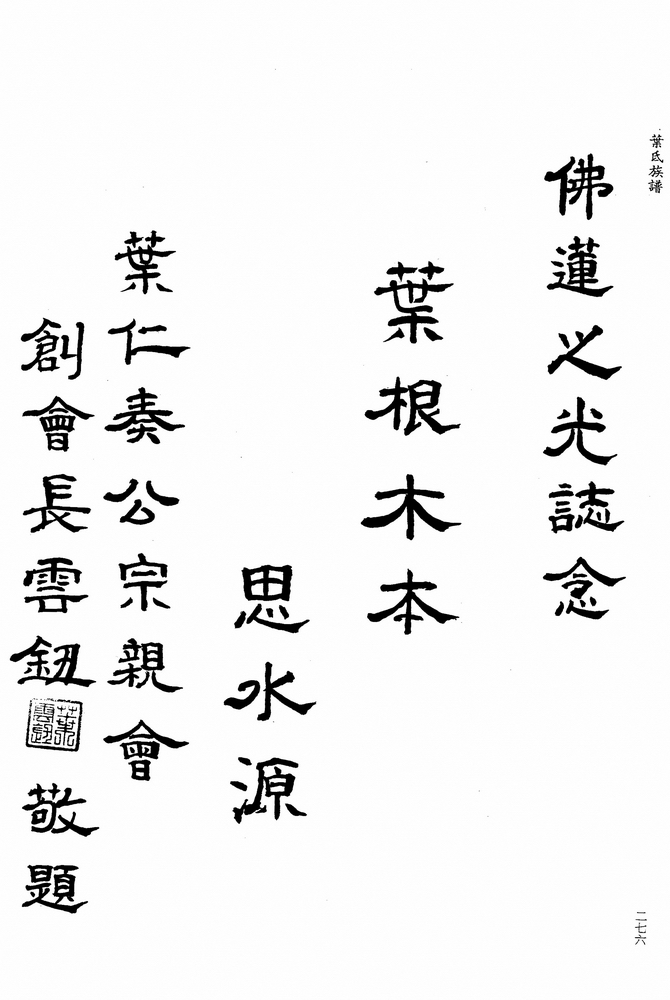 葉氏族譜
佛蓮之光誌念
葉根木本
思水源
葉仁奏公宗親會
創會長雲釼
敬題
二七六